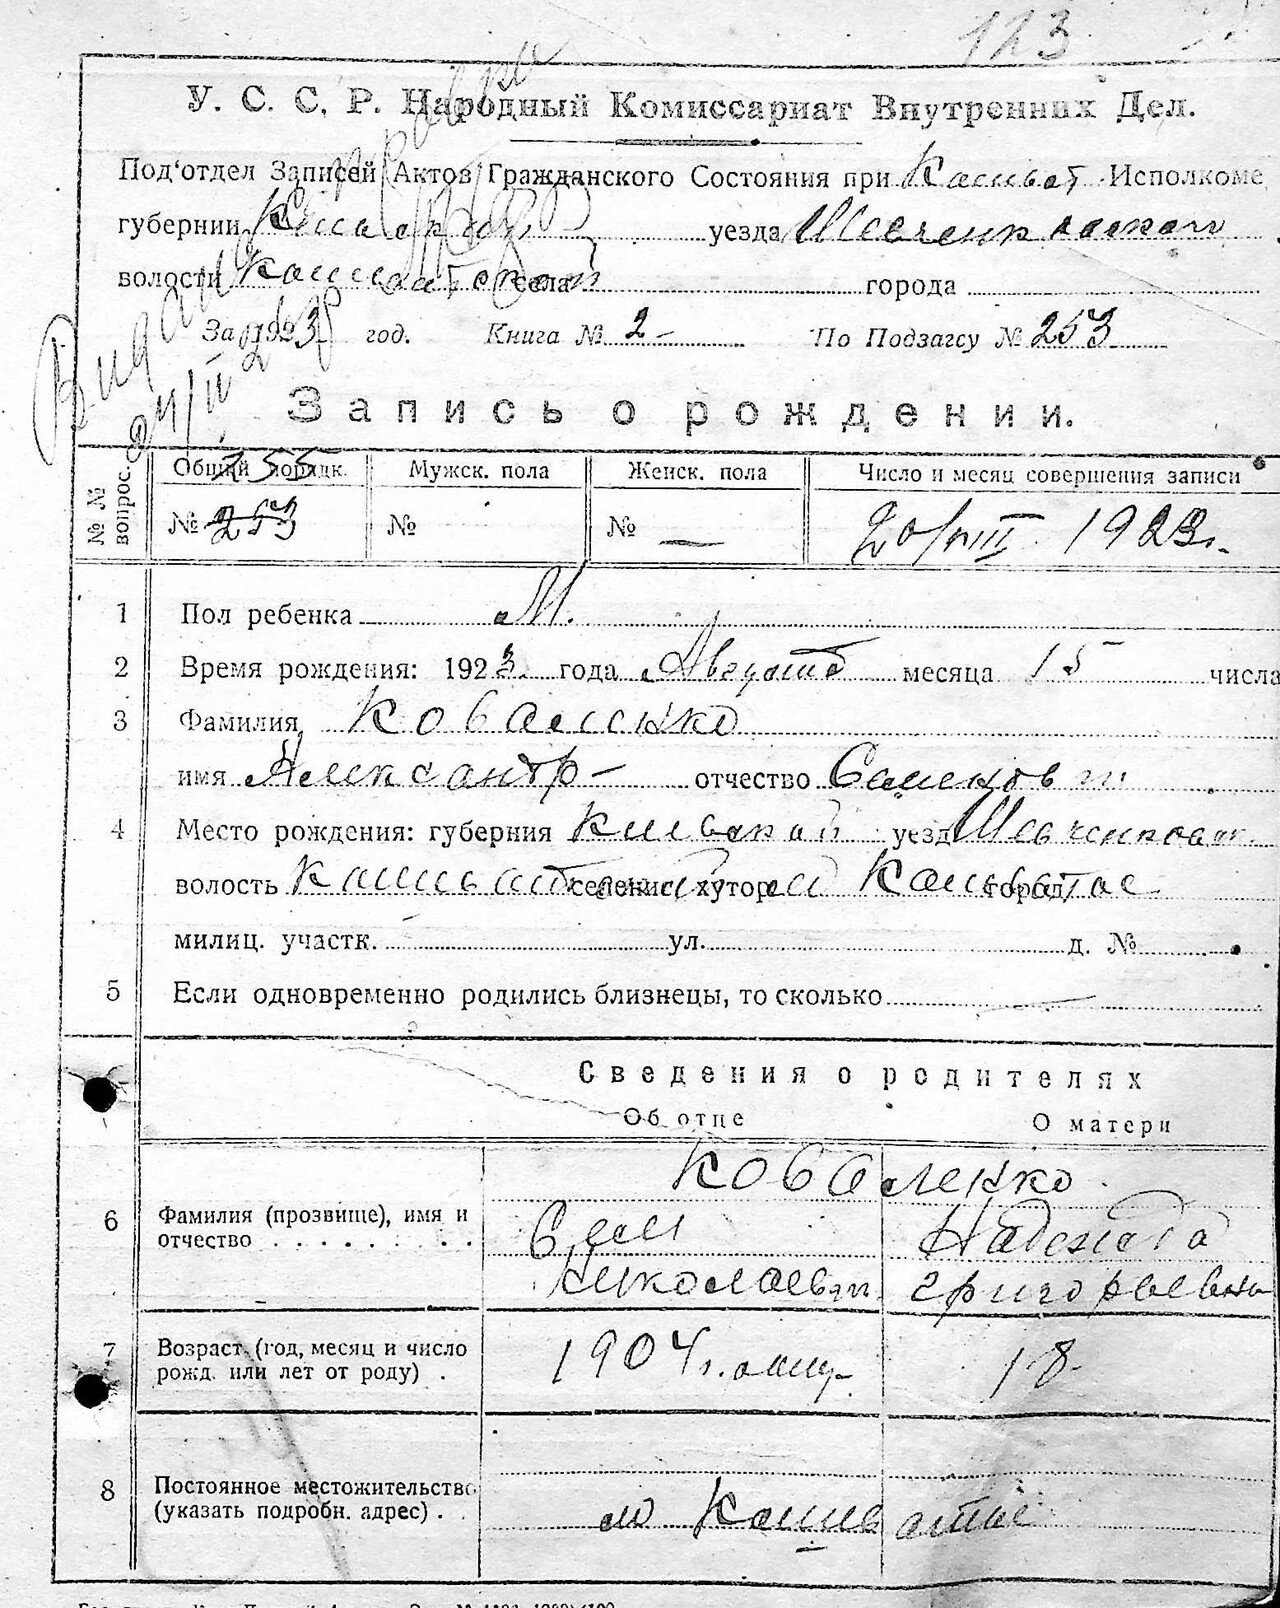 123
У. С. С. Р. Народный Комиссариат Внутренних Дел.
Под'отдел Записей Актов Гражданского Состояния при Кашват. Исполкоме
губернии Киевской уезда Шевченковского
волости Кашватской села города
За 1923 год. Книга № 2 - По Подзагсу № 253
Видано
24/II 28
Запись о рождении.
№ № вопрос. Общий порядк. Мужск. пола Женск. пола Число и месяц совершения записи
255
№ 253 № № — 20/VIII 1923 г.
1 Пол ребенка М.
2 Время рождения: 1923 года Августа месяца 15 числа
3 Фамилия Коваленко
имя Александр - отчество Семенов
4 Место рождения: губерния Киевской уезд Шевченковск.
волость селение, хутор город
милиц. участк. ул. д. №
5 Если одновременно родились близнецы, то сколько —
Сведения о родителях
Об отце О матери
Коваленко
6 Фамилия (прозвище), имя и Надежда
отчество . . . . . . . . . Николаевич Григорьевна
7 Возраст (год, месяц и число 1904 г. 18
рожд. или лет от роду) .
8 Постоянное местожительство
(указать подробн. адрес) . . м